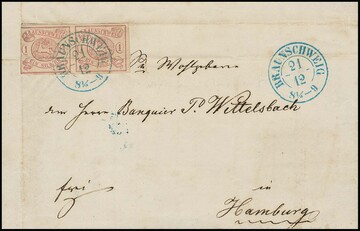 1 1
BRAUNSCHWEIG
21
12
8½—9
BRAUNSCHWEIG
21
12
8½—9
Wohlgeboren
dem Herrn Banquier P. Wittelsbach
frei
in
Hamburg